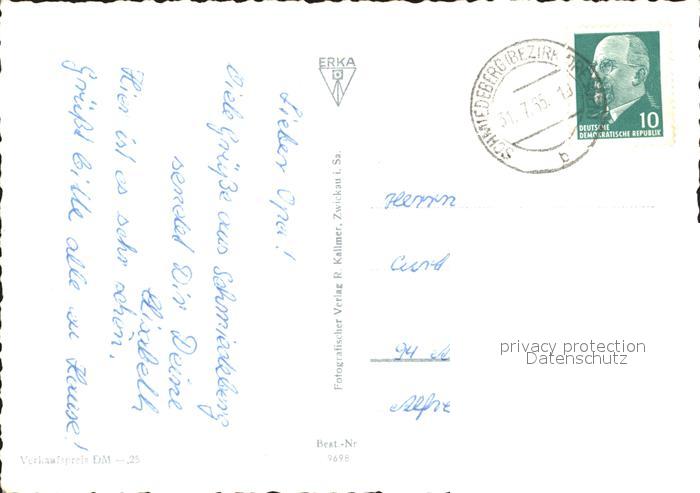 Lieber Opa!
Viele Grüße aus Schmiedeberg
sendet Dir Deine
Elisabeth
Hier ist es sehr schön.
Grüßt bitte alle zu Hause!
ERKA
Fotografischer Verlag R. Kallmer, Zwickau i. Sa.
SCHMIEDEBERG (BEZIRK DRE
31. 7. 65. 1
b
10
DEUTSCHE
DEMOKRATISCHE REPUBLIK
Herrn
Curd
94
privacy protection
Datenschutz
Best.-Nr
9698
Verkaufspreis DM —,25